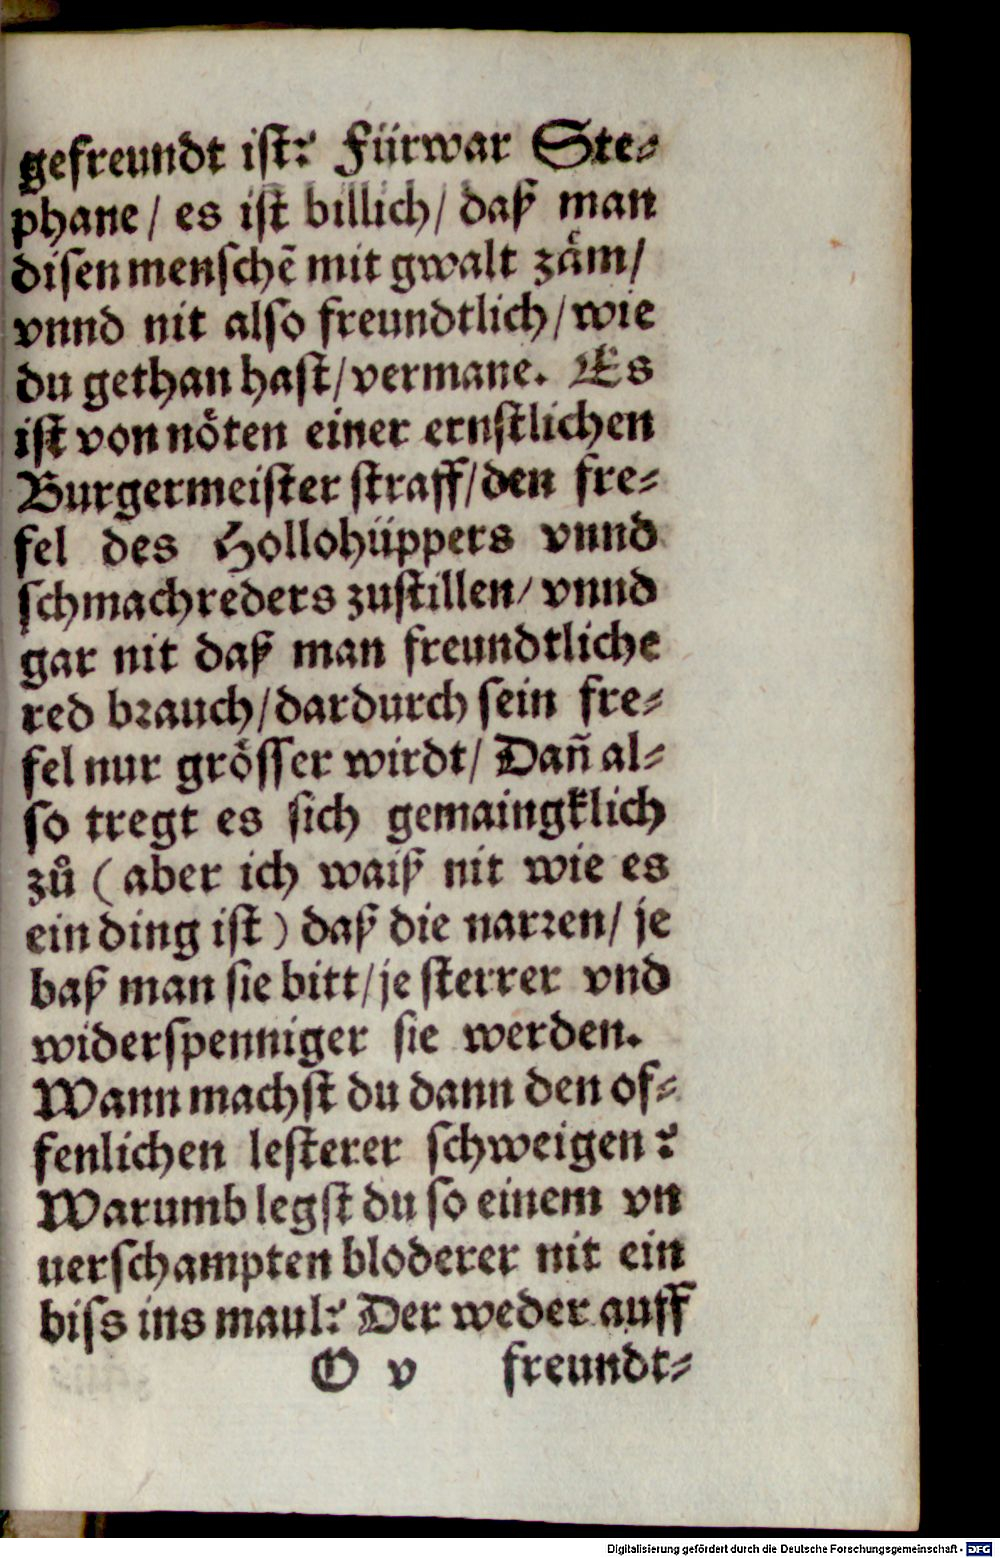 gefreundt ist? Fürwar Ste⸗
phane/ es ist billich/ daß man
disen menschẽ mit gwalt zaͤm/
vnnd nit also freundtlich/ wie
du gethan hast/ vermane. Es
ist von noͤten einer ernstlichen
Burgermeister straff/ den fre⸗
fel des Hollohüppers vnnd
schmachreders zustillen/ vnnd
gar nit daß man freundtliche
red brauch/ dardurch sein fre⸗
fel nur groͤsser wirdt/ Dañ al⸗
so tregt es sich gemaingklich
zuͦ (aber ich waiß nit wie es
ein ding ist) daß die narren/ je
baß man sie bitt/ je sterrer vnd
widerspenniger sie werden.
Wann machst du dann den of⸗
fenlichen lesterer schweigen?
Warumb legst du so einem vn
uerschampten bloderer nit ein
biss ins maul? Der weder auff
O v freundt⸗
Digitalisierung gefördert durch die Deutsche Forschungsgemeinschaft - DFG